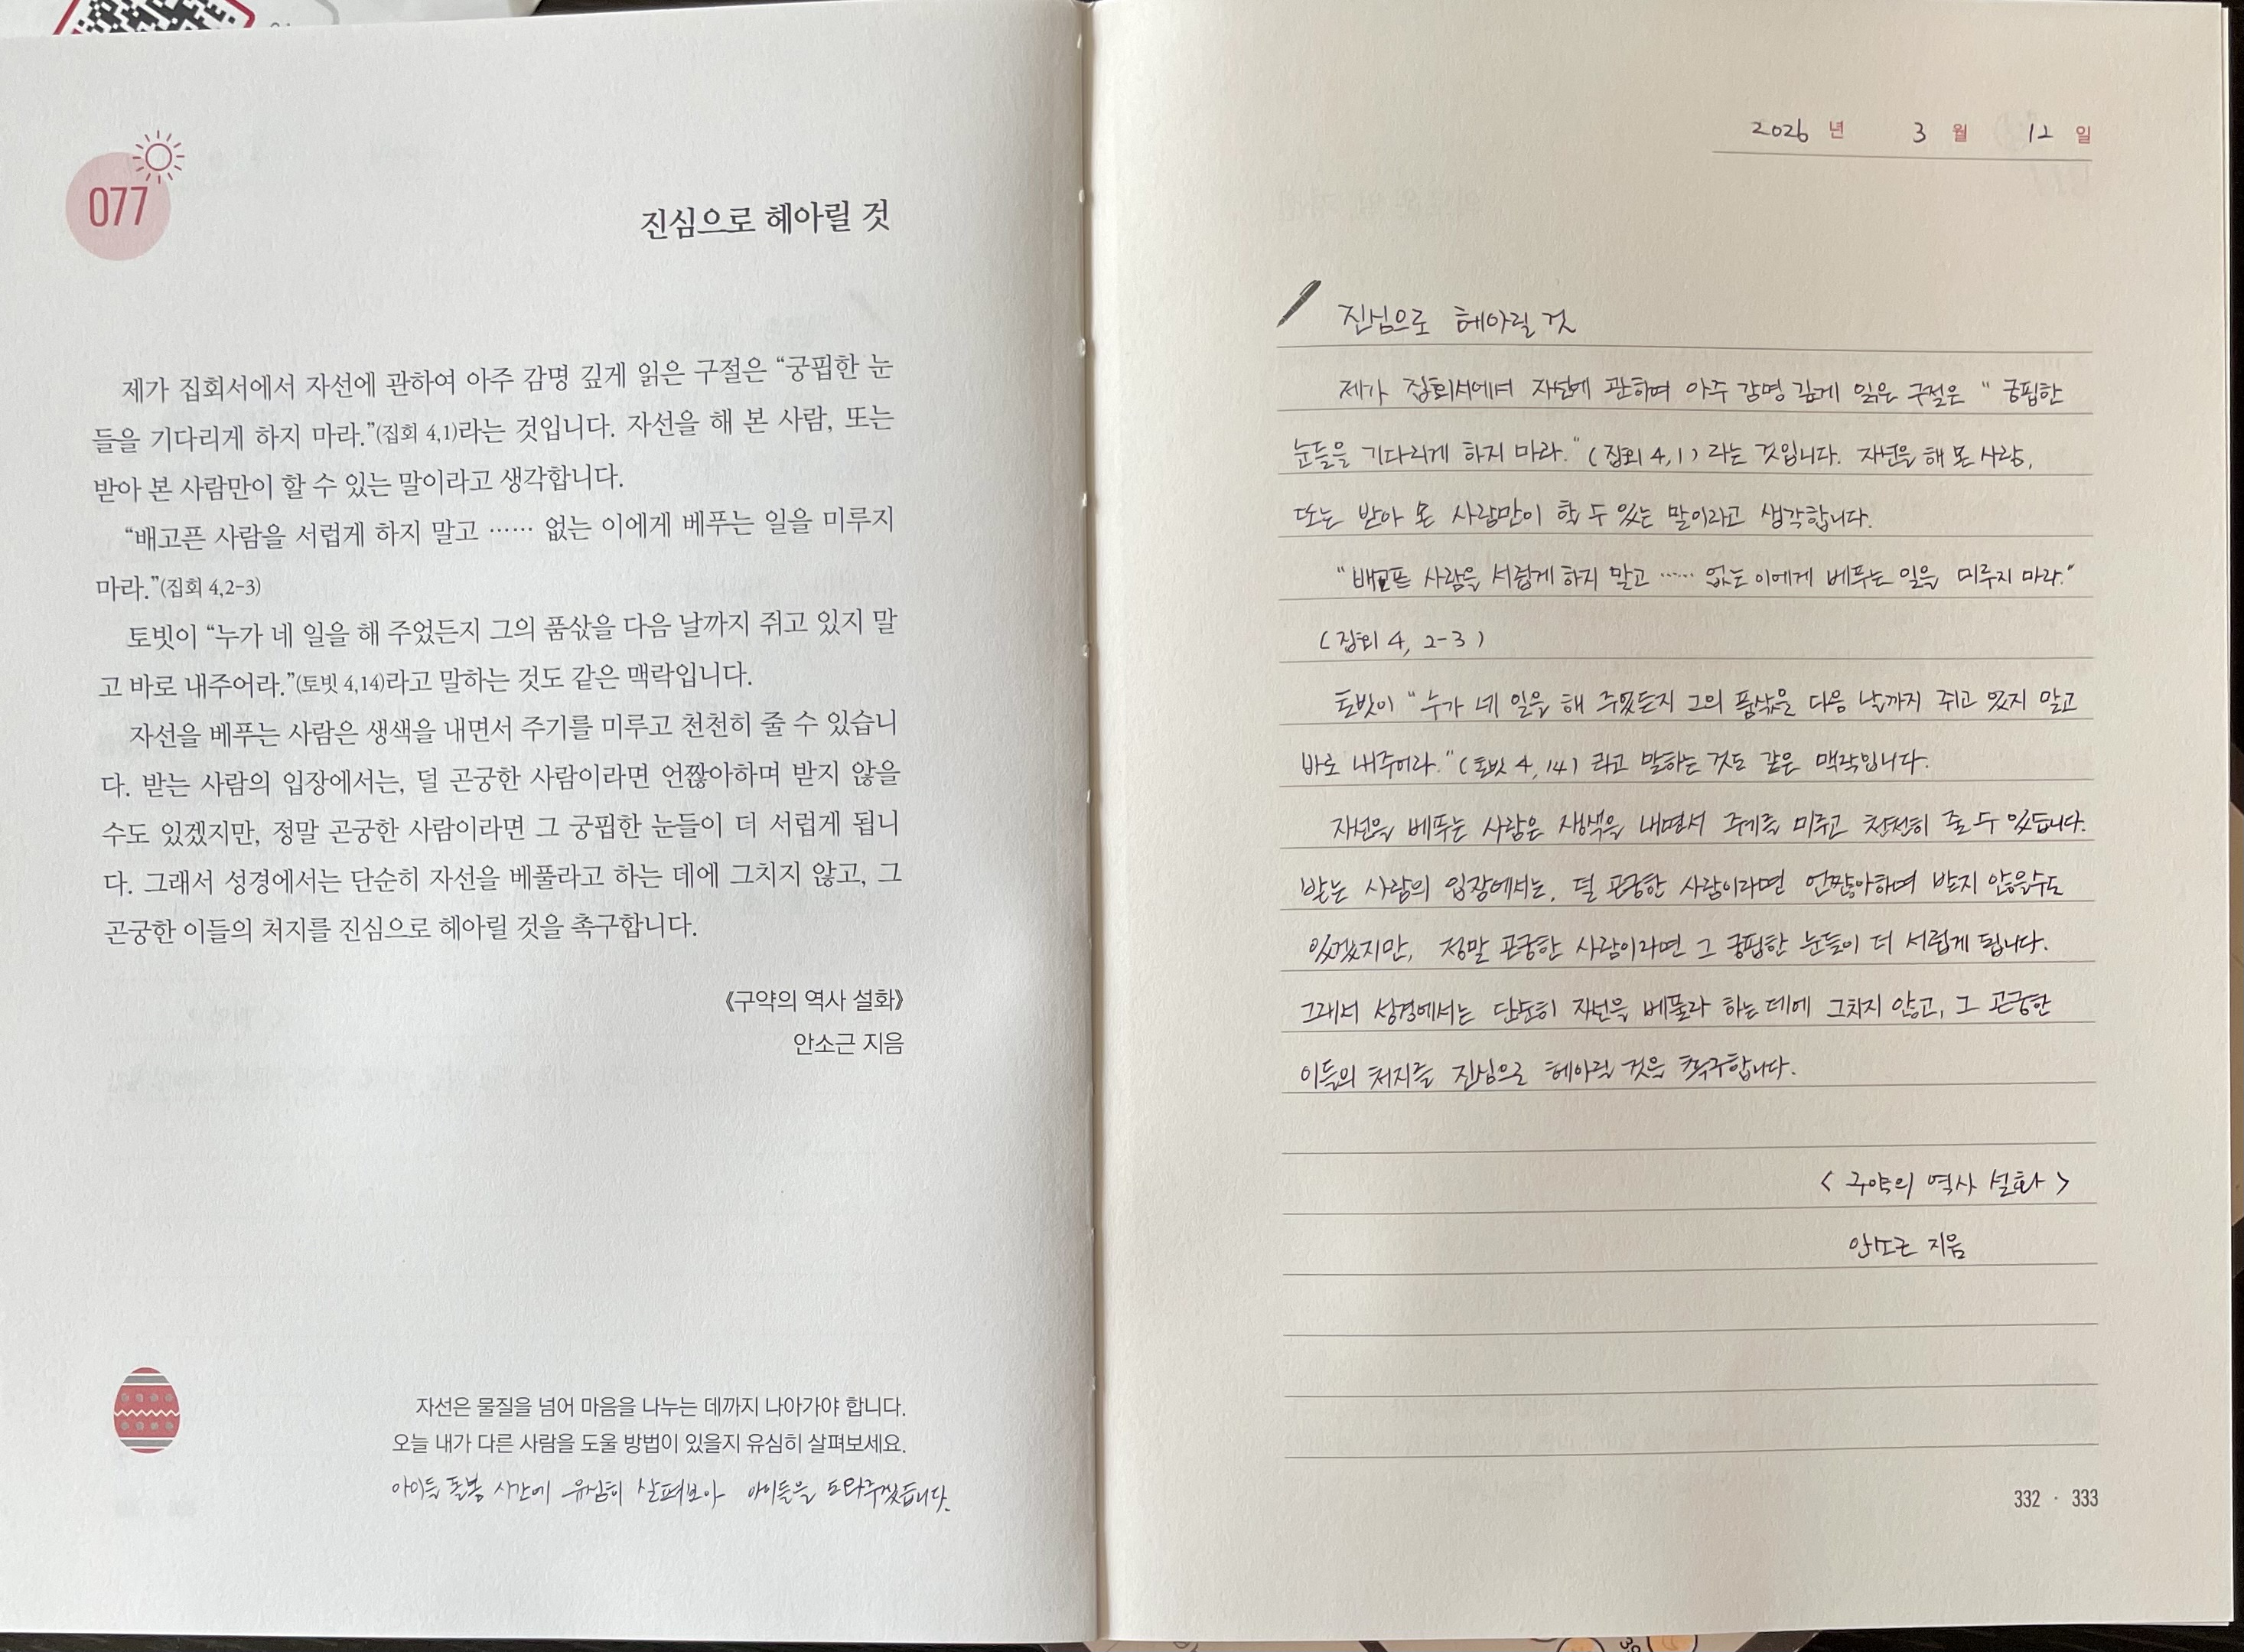 077
진심으로 헤아릴 것
제가 집회서에서 자선에 관하여 아주 감명 깊게 읽은 구절은 “궁핍한 눈
들을 기다리게 하지 마라.”(집회 4,1)라는 것입니다. 자선을 해 본 사람, 또는
받아 본 사람만이 할 수 있는 말이라고 생각합니다.
“배고픈 사람을 서럽게 하지 말고 …… 없는 이에게 베푸는 일을 미루지
마라.”(집회 4,2-3)
토빗이 “누가 네 일을 해 주었든지 그의 품삯을 다음 날까지 쥐고 있지 말
고 바로 내주어라.”(토빗 4,14)라고 말하는 것도 같은 맥락입니다.
자선을 베푸는 사람은 생색을 내면서 주기를 미루고 천천히 줄 수 있습니
다. 받는 사람의 입장에서는, 덜 곤궁한 사람이라면 언짢아하며 받지 않을
수도 있겠지만, 정말 곤궁한 사람이라면 그 궁핍한 눈들이 더 서럽게 됩니
다. 그래서 성경에서는 단순히 자선을 베풀라고 하는 데에 그치지 않고, 그
곤궁한 이들의 처지를 진심으로 헤아릴 것을 촉구합니다.
《구약의 역사 설화》
안소근 지음
자선은 물질을 넘어 마음을 나누는 데까지 나아가야 합니다.
오늘 내가 다른 사람을 도울 방법이 있을지 유심히 살펴보세요.
아이들 돌봄 시간에 유심히 살펴보아 아이들을 도와주겠습니다.
2026 년 3 월 12 일
진심으로 헤아릴 것
제가 집회서에서 자선에 관하여 아주 감명 깊게 읽은 구절은 “궁핍한
눈들을 기다리게 하지 마라.” (집회 4,1) 라는 것입니다. 자선을 해 본 사람,
또는 받아 본 사람만이 할 수 있는 말이라고 생각합니다.
“배고픈 사람을 서럽게 하지 말고 …… 없는 이에게 베푸는 일을 미루지 마라.”
(집회 4, 2-3)
토빗이 “누가 네 일을 해 주었든지 그의 품삯을 다음 날까지 쥐고 있지 말고
바로 내주어라.” (토빗 4,14) 라고 말하는 것도 같은 맥락입니다.
자선을 베푸는 사람은 생색을 내면서 주기를 미루고 천천히 줄 수 있습니다.
받는 사람의 입장에서는, 덜 곤궁한 사람이라면 언짢아하며 받지 않을수도
있겠지만, 정말 곤궁한 사람이라면 그 궁핍한 눈들이 더 서럽게 됩니다.
그래서 성경에서는 단순히 자선을 베풀라 하는 데에 그치지 않고, 그 곤궁한
이들의 처지를 진심으로 헤아릴 것을 촉구합니다.
< 구약의 역사 설화 >
안소근 지음
332 · 333